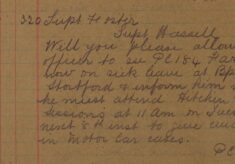 320 Supt Foster
Supt Hassell
Will you please allow
officer to see PC 184
now on sick leave at Bp
Stortford & inform him
he must attend Hitchin
Sessions at 11 am on Tues
next 8th inst to give evi
in Motor Car cases.
PC